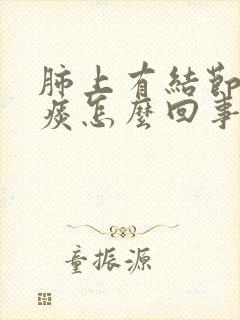 肺上有結節
痰怎麼回事
童振源